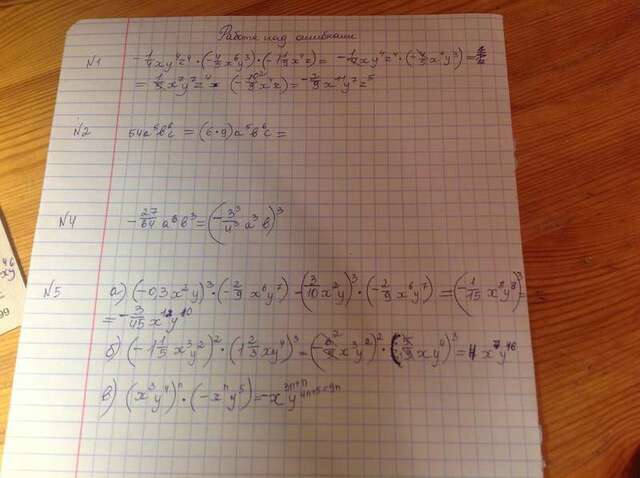 Работа над ошибками
N1 -1/7 xy⁴z⁴ · (-4/3 x⁶y³) · (-1 1/9 x⁴z) = -1/7 xy⁴z⁴ · (-4/3 x⁶y³) =
= 1/3 x⁷y⁷z⁴ · (-10/9 x⁴z) = x¹¹y⁷z⁵
N2 54a⁵b⁶c = (6·9)a⁵b⁶c =
N4 -27/64 a⁶b³ = (-3³/4³ a³b)³
N5 а) (-0,3x²y)³ · (-2/9 x⁶y⁷) - (3/10 x²y)³ · (-2/9 x⁶y⁷) = (-1/15 x⁸y⁸)³ =
= -3/45 x¹²y¹⁰
б) (-1 1/5 x³y²)² · (1 2/3 xy⁴)³ = x³y²)² · xy⁴)³ = x⁷y¹⁶
в) (x³y⁴)ⁿ · (-xⁿy⁵) = -x³ⁿ⁺ⁿy⁴ⁿ⁺⁵⁼⁹ⁿ